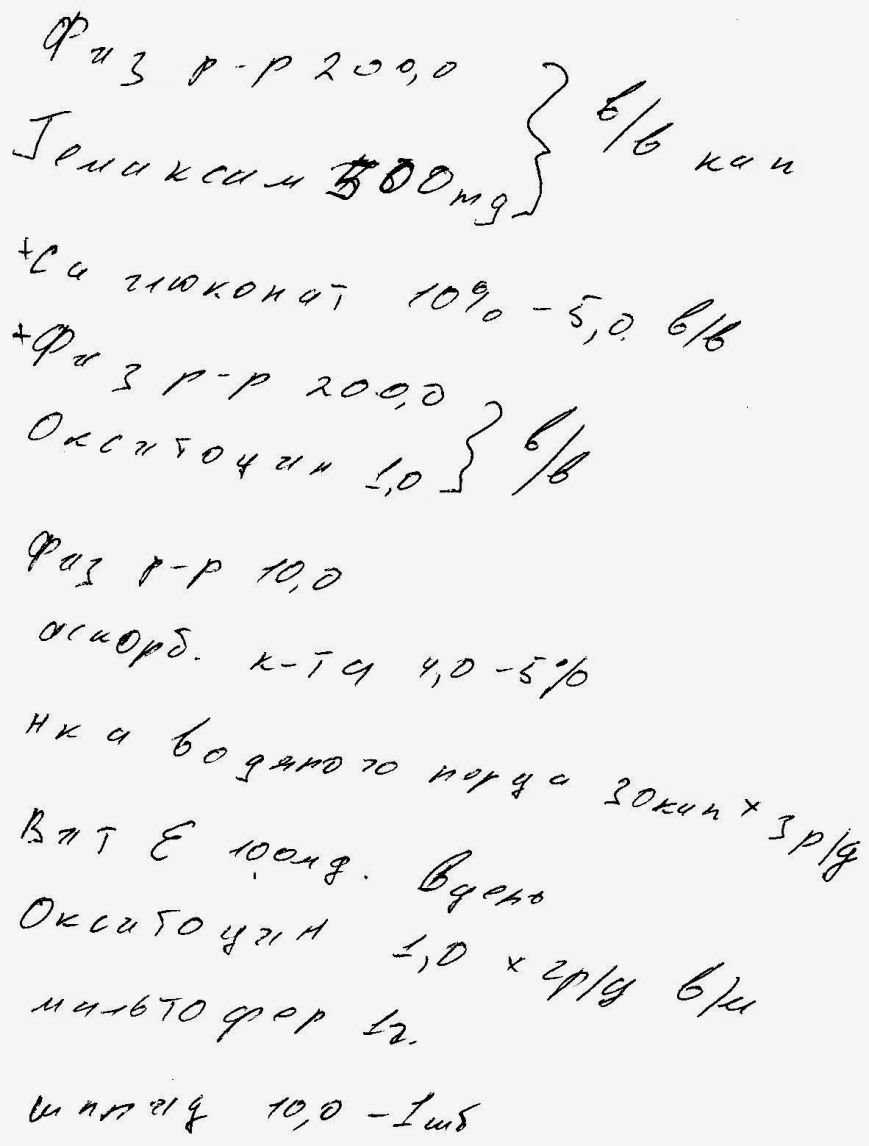 Физ р-р 200,0 } в/в кап
Гемаксим 500 mg
+ Ca глюконат 10% - 5,0. в/в
+ Физ р-р 200,0 } в/в
Окситоцин 1,0
Физ р-р 10,0
аскорб. к-та 4,0 - 5%
н-ка водяного перца 30кап × 3р/д
Вит Е 100мд. в день
Окситоцин 1,0 × 2р/д в/м
мальтофер 1т.
шприц 10,0 - 1шт